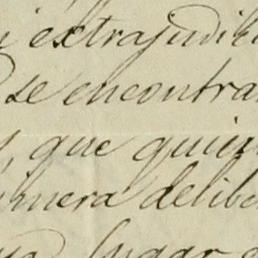 i extrajudici
se encontra
, que quin
imera delibe
lugar